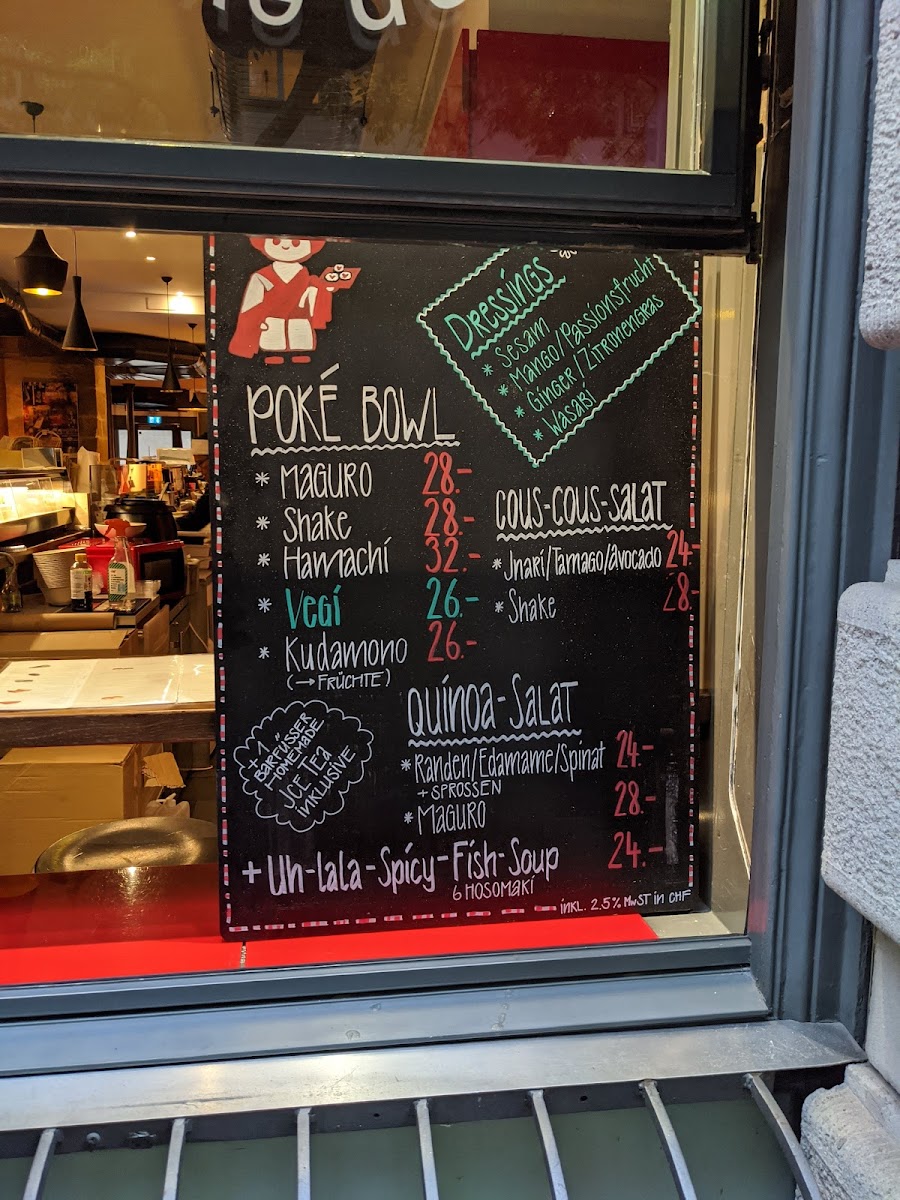 Dressings
* Sesam
* Mango/Passionsfrucht
* Ginger/Zitronengras
* Wasabi
POKÉ BOWL
* MAGURO 28.-
* Shake 28.-
* Hamachi 32.-
* Vegi 26.-
* Kudamono 26.-
(→ FRÜCHTE)
COUS-COUS-SALAT
* Jnari/Tamago/Avocado 24.-
* Shake 28.-
QUINOA-SALAT
* Randen/Edamame/Spinat 24.-
+ SPROSSEN
* MAGURO 28.-
+ 1
BARFÜSSER
HOMEMADE
JCE TEA
INKLUSIVE
+ Uh-lala-Spicy-Fish-Soup 24.-
6 HOSOMAKI
INKL. 2.5% MWST IN CHF